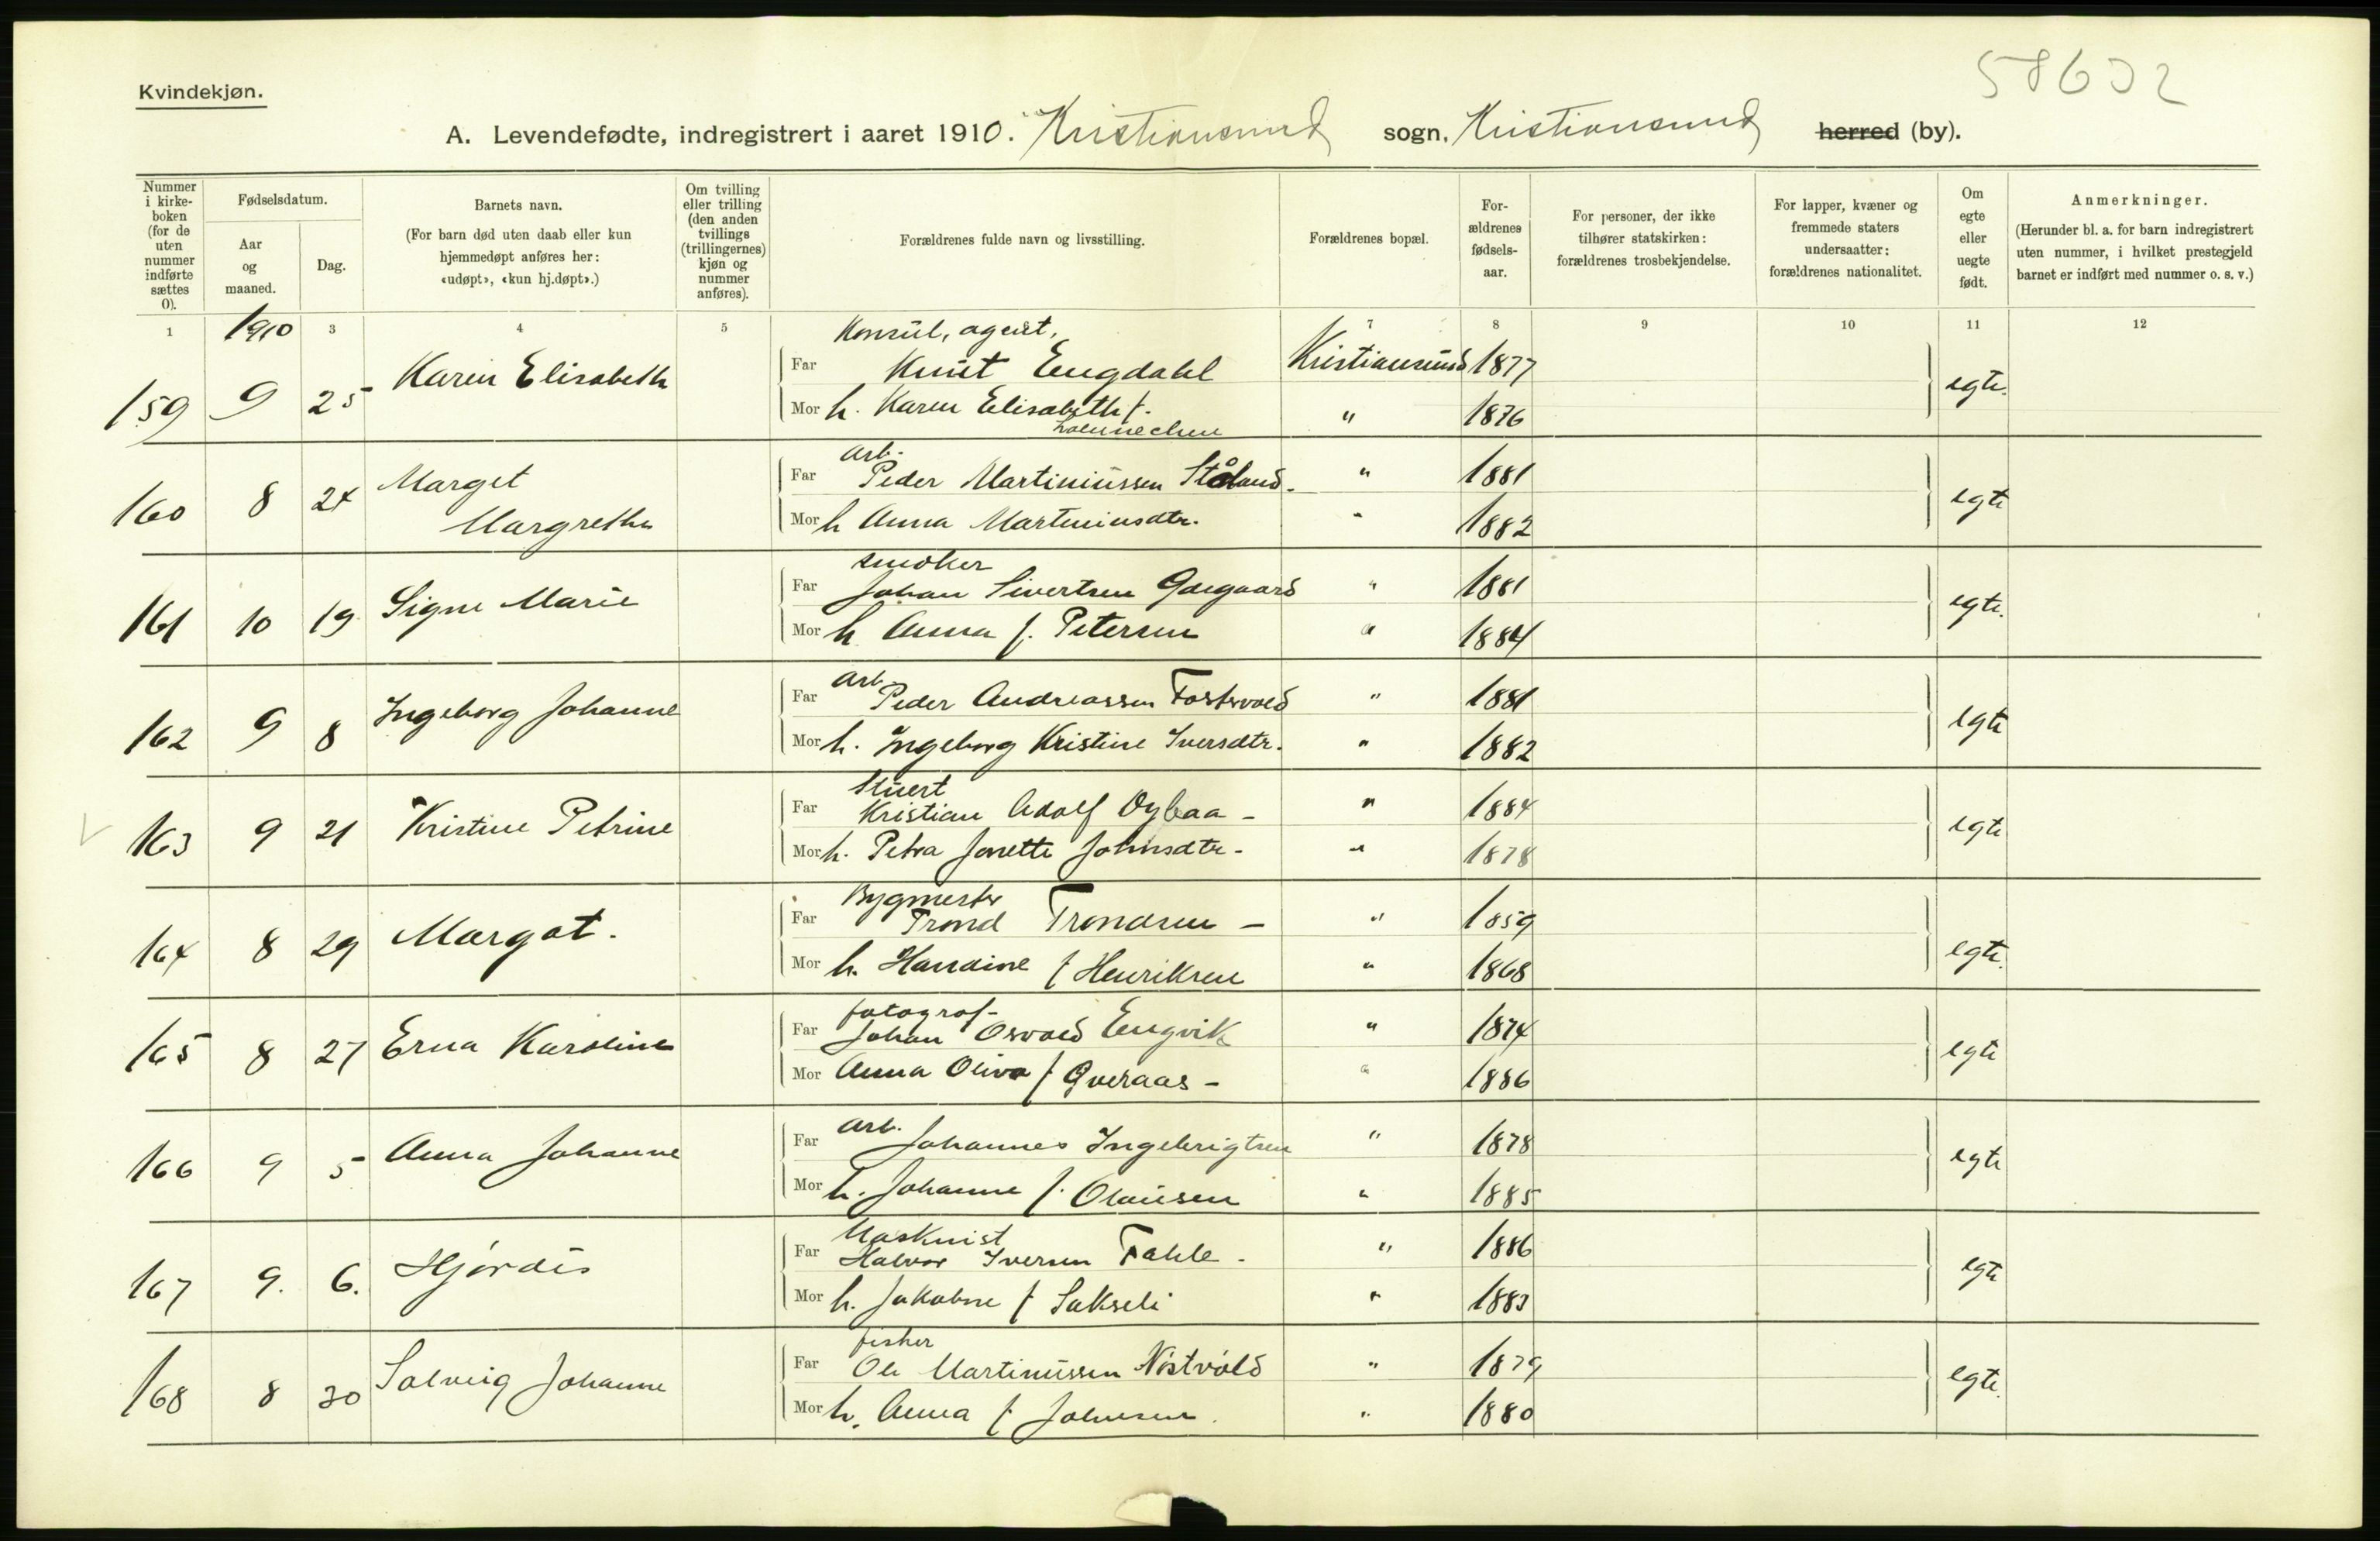 58632
Kvindekjøn.
A. Levendefødte, indregistrert i aaret 1910. Kristiansund sogn, Kristiansund herred (by).
Nummer i kirke-boken (for de uten nummer indførte sættes 0).
Fødselsdatum.
Aar og maaned.
Dag.
Barnets navn.
(For barn død uten daab eller kun hjemmedøpt anføres her: «udøpt», «kun hj.døpt».)
Om tvilling eller trilling (den anden tvillings (trillingernes) kjøn og nummer anføres).
Forældrenes fulde navn og livsstilling.
Forældrenes bopæl.
For-ældrenes fødsels-aar.
For personer, der ikke tilhører statskirken: forældrenes trosbekjendelse.
For lapper, kvæner og fremmede staters undersaatter: forældrenes nationalitet.
Om egte eller uegte født.
Anmerkninger.
(Herunder bl. a. for barn indregistrert uten nummer, i hvilket prestegjeld barnet er indført med nummer o. s. v.)
1 1910 3 4 5 7 8 9 10 11 12
Konsul, agent.
159 9 25 Karen Elisabeth Far Knut Engdahl Kristiansund 1877 egte.
Mor h. Karen Elisabeth f. " 1876
arb.
160 8 24 Marget Margrethe Far Peder Martiniussen Stålund. " 1881 egte
Mor h Anna Martiniusdtr. " 1882
smøker
161 10 19 Signe Marie Far Johan Sivertsen Gaugaard " 1881 egte.
Mor h Anna f. Petersen " 1884
arb.
162 9 8 Ingeborg Johanne Far Peder Andreassen Fostervold " 1881 egte
Mor h. Ingeborg Kristine Iversdtr. " 1882
Stuert
163 9 21 Kristine Petrine Far Kristian Adolf Dybaa - " 1884 egte
Mor h. Petra Jonette Johnsdtr. " 1878
Bygmester
164 8 29 Margot. Far Trond Trondsen - " 1859 egte.
Mor h. Handine f Henriksen " 1868
fotograf-
165 8 27 Erna Karoline Far Johan Osvald Engvik " 1874 egte
Mor Anna Oliva f Qveraas - " 1886
arb.
166 9 5 Anna Johanne Far Johannes Ingebrigtsen " 1878 egte
Mor h. Johanne f. Olausen " 1885
Maskinist
167 9. 6. Hjørdis Far Halvor Iversen Fahle. " 1886 egte
Mor h. Jakobine f Sakseli " 1883
fisker
168 8 30 Solveig Johanne Far Ole Martinussen Nostvold " 1879 egte.
Mor h. Anna f Johnsen. " 1880